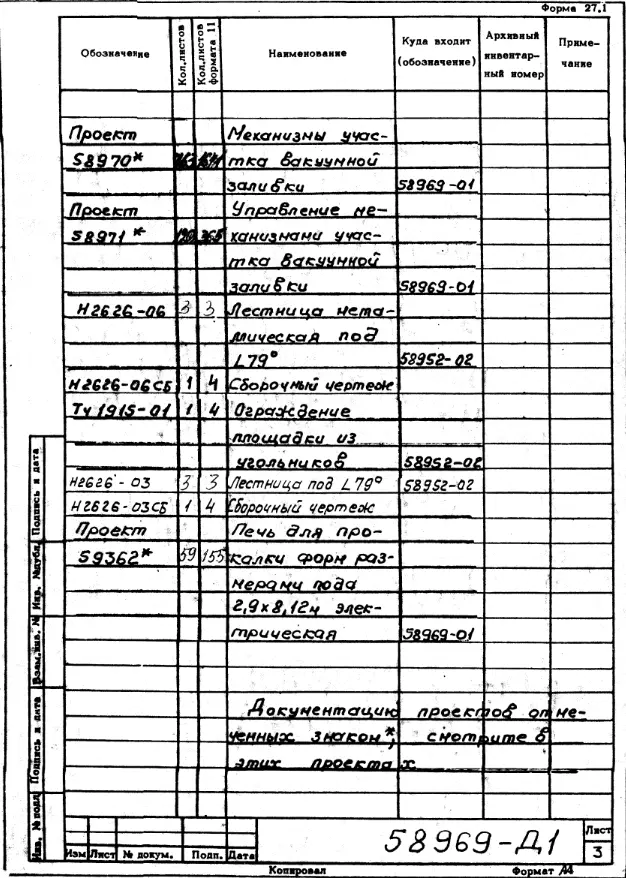 Форма 27.1
Обозначение Кол.листов Кол.листов формата 11 Наименование Куда входит (обозначение) Архивный инвентарный номер Примечание
Проект Механизмы учас-
58970* тка вакуумной
заливки 58969-01
Проект Управление ме-
58971* ханизмами учас-
тка вакуумной
заливки 58969-01
Н2626-06 3 3 Лестница мета-
ллическая под
L79° 58952-02
Н2626-06СБ 1 4 Сборочный чертеж
ТЧ1915-01 1 4 Ограждение
площадки из
угольников 58952-02
Н2626-03 3 3 Лестница под L79° 58952-02
Н2626-03СБ 1 4 Сборочный чертеж
Проект Печь для про-
59362* 59 155 калки форм раз-
мерами пода
2,9х8,12м элек-
трическая 58969-01
Документацию проектов отме-
ченных знаком*, смотрите в
этих проектах
Инв. № подл Подпись и дата Взам.инв. № Инв. №дубл. Подпись и дата
58969-Д1
Лист
3
Изм Лист № докум. Подп. Дата
Копировал Формат А4